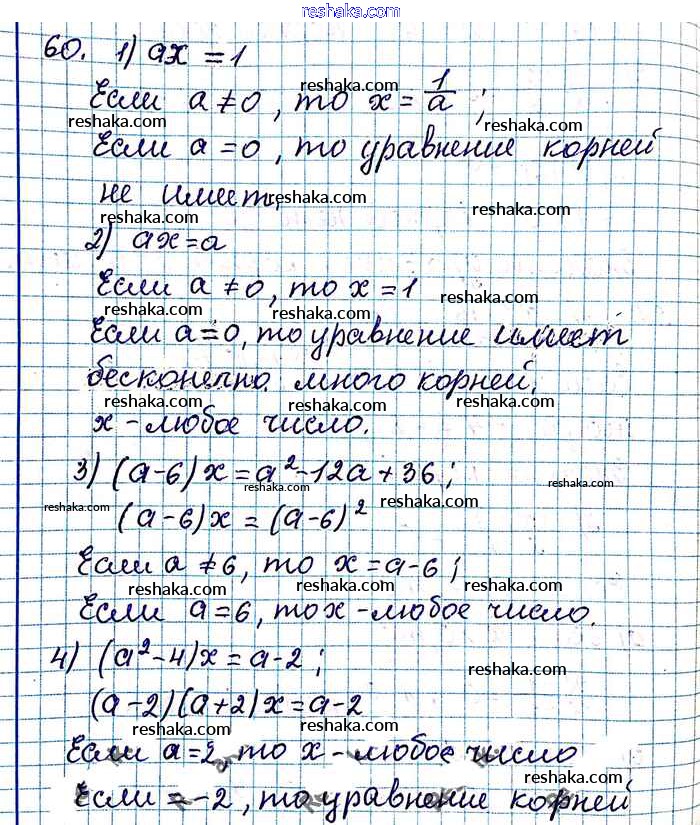 reshaka.com
60. 1) ax = 1
reshaka.com
Если a ≠ 0, то x = 1/a;
reshaka.com reshaka.com
Если a = 0, то уравнение корней
не имеет, reshaka.com reshaka.com
reshaka.com
2) ax = a
Если a ≠ 0, то x = 1
reshaka.com reshaka.com
Если a = 0, то уравнение имеет
reshaka.com reshaka.com
бесконечно много корней.
reshaka.com reshaka.com
x - любое число.
3) (a-6)x = a² - 12a + 36;
reshaka.com
reshaka.com reshaka.com
(a-6)x = (a-6)²
Если a ≠ 6, то x = a-6;
reshaka.com reshaka.com
Если a = 6, то x - любое число.
reshaka.com
4) (a²-4)x = a-2;
reshaka.com
(a-2)(a+2)x = a-2
reshaka.com reshaka.com
Если a = 2, то x - любое число
reshaka.com
Если = -2, то уравнение корней
reshaka.com